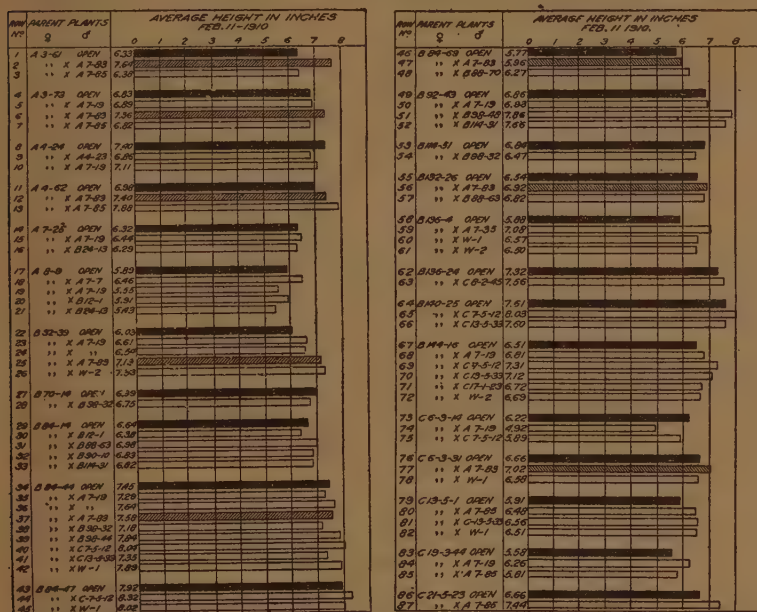 ROW PARENT PLANTS AVERAGE HEIGHT IN INCHES
Nº ♀ ♂ FEB. 11-1910
0 1 2 3 4 5 6 7 8
1 A 3-61 OPEN 6.33
2 " X A 7-83 7.64
3 " X A 7-85 6.38
4 A 3-73 OPEN 6.83
5 " X A 7-19 6.89
6 " X A 7-83 7.36
7 " X A 7-85 6.82
8 A 4-24 OPEN 7.40
9 " X A 4-23 6.86
10 " X A 7-19 7.11
11 A 4-62 OPEN 6.98
12 " X A 7-83 7.40
13 " X A 7-85 7.88
14 A 7-25 OPEN 6.32
15 " X A 7-19 6.44
16 " X B 24-13 6.29
17 A 8-8 OPEN 5.89
18 " X A 7-7 6.46
19 " X A 7-19 5.55
20 " X B 12-1 5.91
21 " X B 24-13 5.43
22 B 32-39 OPEN 6.03
23 " X A 7-19 6.61
24 " X " 6.50
25 " X A 7-83 7.13
26 " X W-2 7.33
27 B 70-14 OPEN
28 " X B 98-32 6.75
29 B 84-14 OPEN 6.64
30 " X B 12-1 6.38
31 " X B 88-63 6.98
32 " X B 90-10 6.83
33 " X B 114-31 6.82
34 B 84-44 OPEN 7.45
35 " X A 7-19 7.29
36 " X " 7.64
37 " X A 7-83 7.58
38 " X B 98-32 7.18
39 " X B 98-44 7.84
40 " X C 7-5-12 8.04
41 " X C 13-5-33 7.35
42 " X W-1 7.89
43 B 84-47 OPEN 7.92
44 " X C 7-5-12 8.32
45 " X W-1 8.02
ROW PARENT PLANTS AVERAGE HEIGHT IN INCHES
Nº ♀ ♂ FEB. 11 1910.
0 1 2 3 4 5 6 7 8
46 B 84-69 OPEN 5.77
47 " X A 7-83 5.96
48 " X B 88-70 6.27
49 B 92-43 OPEN 6.86
50 " X A 7-19
51 " X B 98-48 7.86
52 " X B 114-31 7.66
53 B 114-31 OPEN 6.84
54 " X B 88-32 6.47
55 B 132-26 OPEN 6.54
56 " X A 7-83 6.92
57 " X B 88-63 6.82
58 B 136-4 OPEN 5.88
59 " X A 7-35 7.08
60 " X W-1 6.57
61 " X W-2 6.50
62 B 136-24 OPEN 7.32
63 " X C 8-2-45 7.56
64 B 140-25 OPEN 7.61
65 " X C 7-5-12 8.03
66 " X C 13-5-33 7.60
67 B 144-16 OPEN 6.51
68 " X A 7-19 6.81
69 " X C 7-5-12 7.31
70 " X C 13-5-33 7.12
71 " X C 17-1-23 6.72
72 " X W-2 6.69
73 C 6-3-14 OPEN 6.22
74 " X A 7-19 4.92
75 " X C 7-5-12 5.89
76 C 6-3-31 OPEN 6.66
77 " X A 7-83 7.02
78 " X W-1 6.58
79 C 13-5-1 OPEN 5.91
80 " X A 7-85 6.48
81 " X C 13-5-33 6.56
82 " X W-1 6.51
83 C 19-3-44 OPEN 5.58
84 " X A 7-19 6.26
85 " X A 7-85 5.81
86 C 21-5-23 OPEN 6.66
87 " X A 7-85 7.44